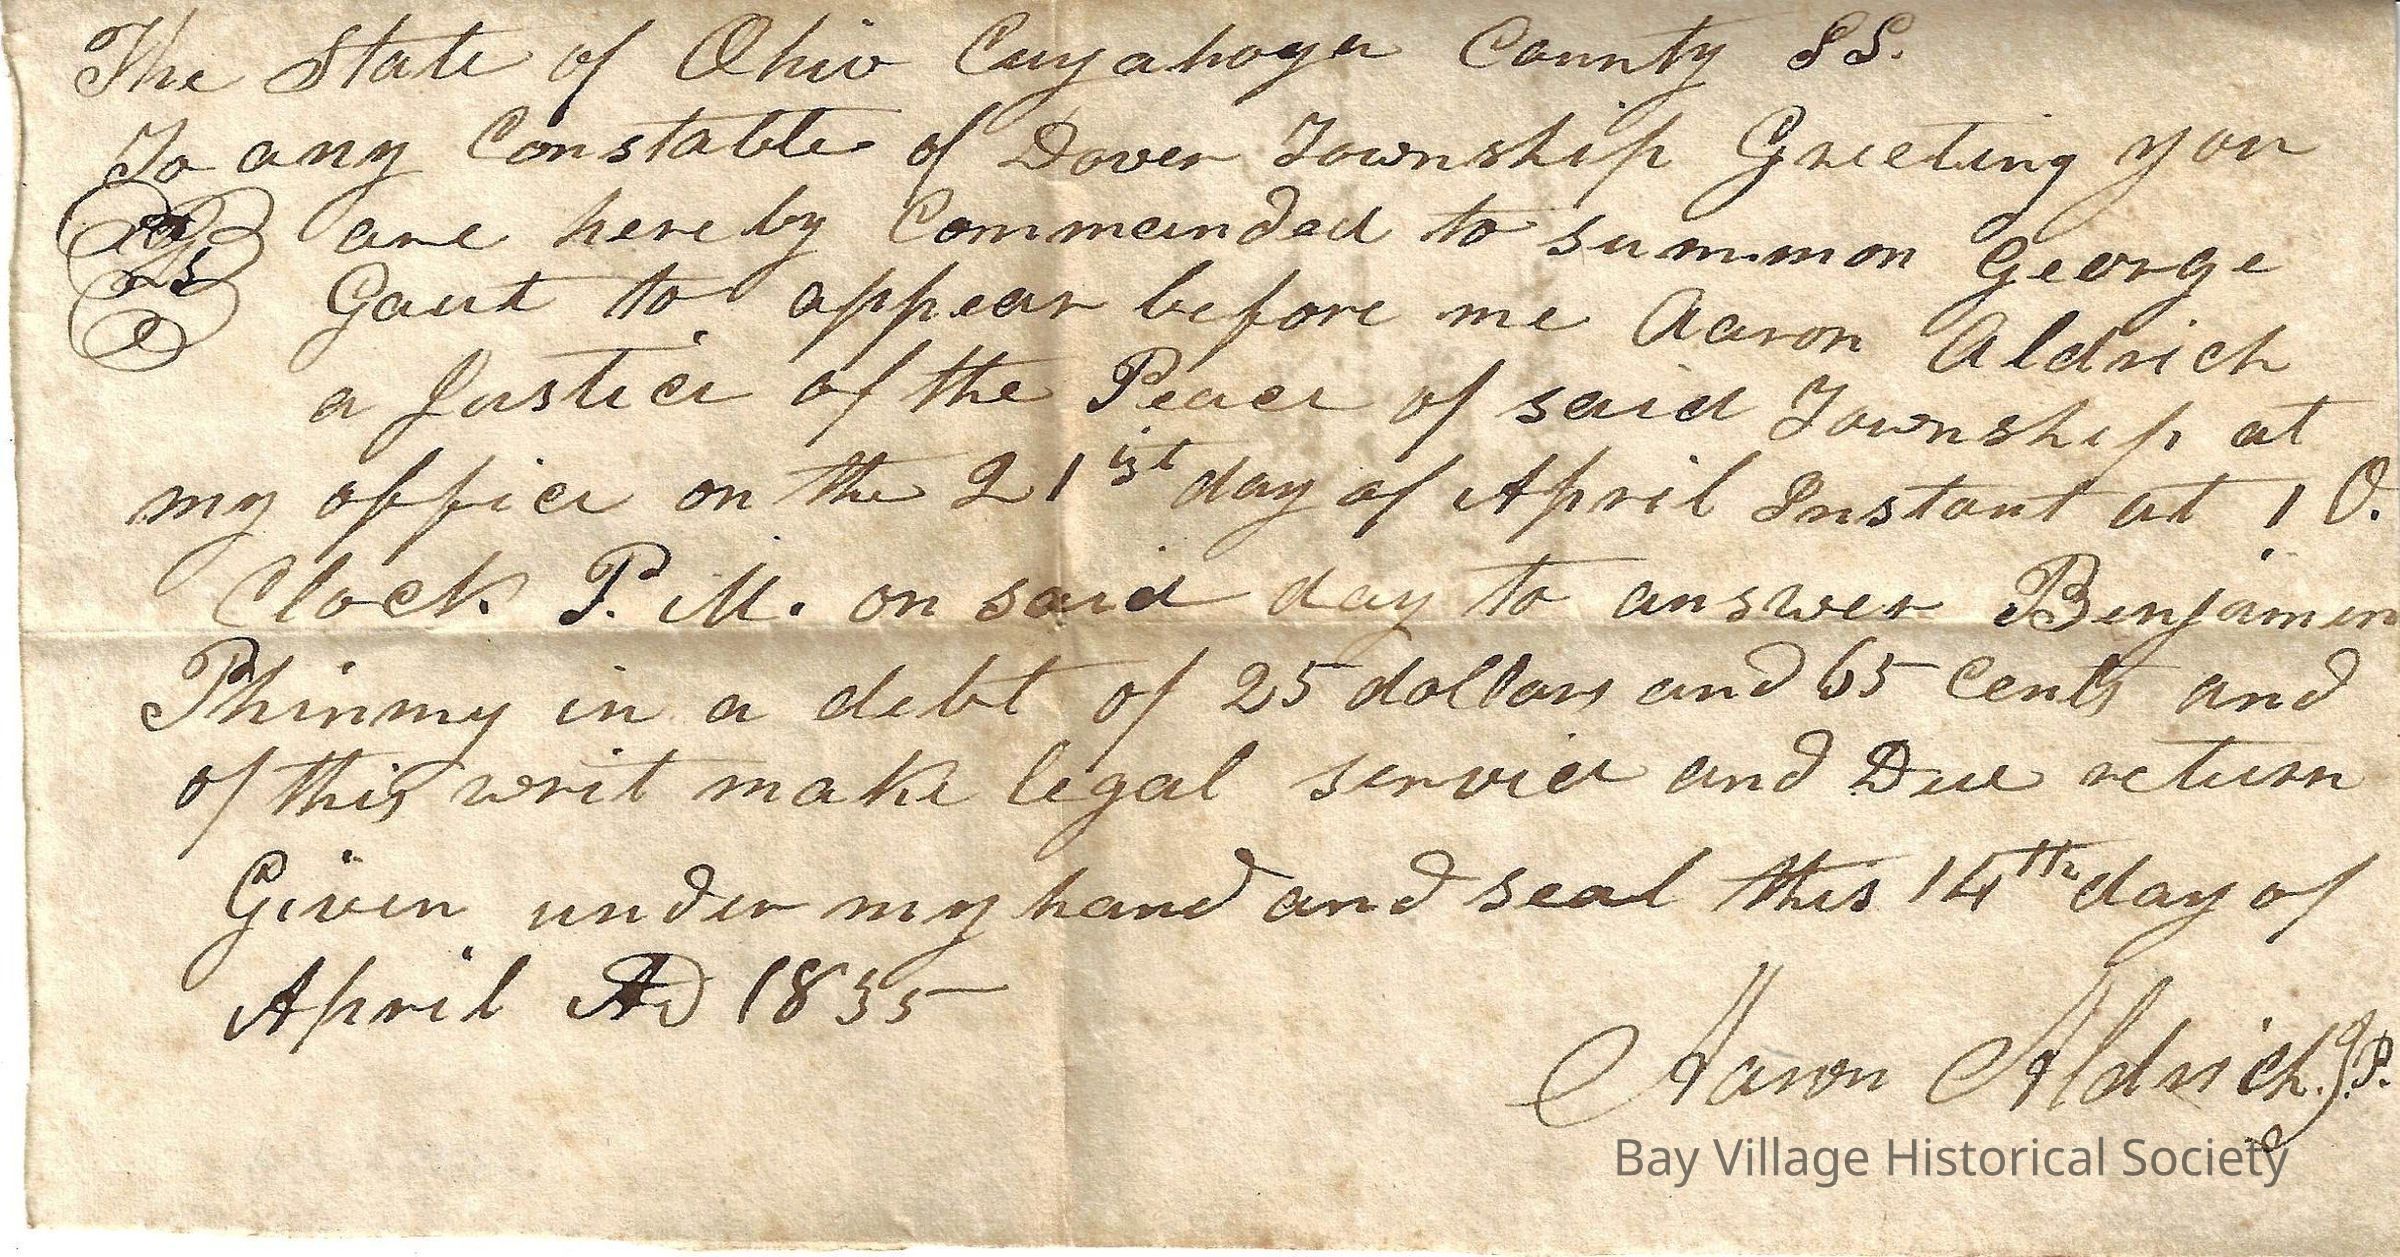 The State of Ohio Cuyahoga County SS.
To any Constable of Dover Township Greeting you
are hereby Commanded to summon George
Gaut to appear before me Aaron Aldrich
a Justice of the Peace of said Township at
my office on the 21ist day of April Instant at 1 O.
Clock P. M. on said day to answer Benjamin
Phinmy in a debt of 25 dollars and 65 Cents and
of this writ make legal service and Due return
Given under my hand and seal this 14th day of
April AD 1835
Aaron Aldrich. J.P.
Bay Village Historical Society